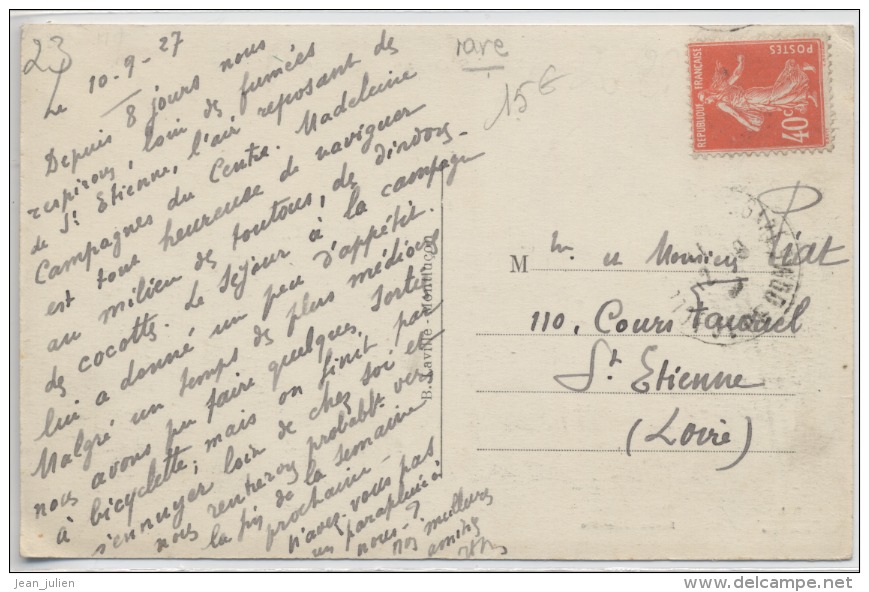 23
Le 10-9-27
Depuis 8 jours nous
respirons, loin des fumées
de St Etienne, l'air reposant des
Campagnes du Centre. Madeleine
est tout heureuse de naviguer
au milieu des toutous, des dindons,
des cocottes. Le séjour à la campagne
lui a donné un peu d'appétit.
Malgré un temps des plus médiocres
nous avons pu faire quelques sorties
à bicyclette; mais on finit par
s'ennuyer loin de chez soi et
nous rentrerons probablt vers
la fin de la semaine
prochaine.
N'avez-vous pas
un parapluie à
nous ?
nos meilleures
amitiés
rare
15€
B. Laville - Montluçon
REPUBLIQUE FRANÇAISE
POSTES
40c
M m. et Monsieur Liat
110, Cours Fauriel
St Etienne
(Loire)
Jean_julien
delcampe.net